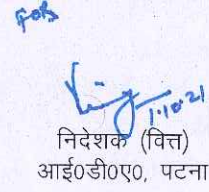 1.10.21
निदेशक (वित्त)
आई0डी0ए0, पटना